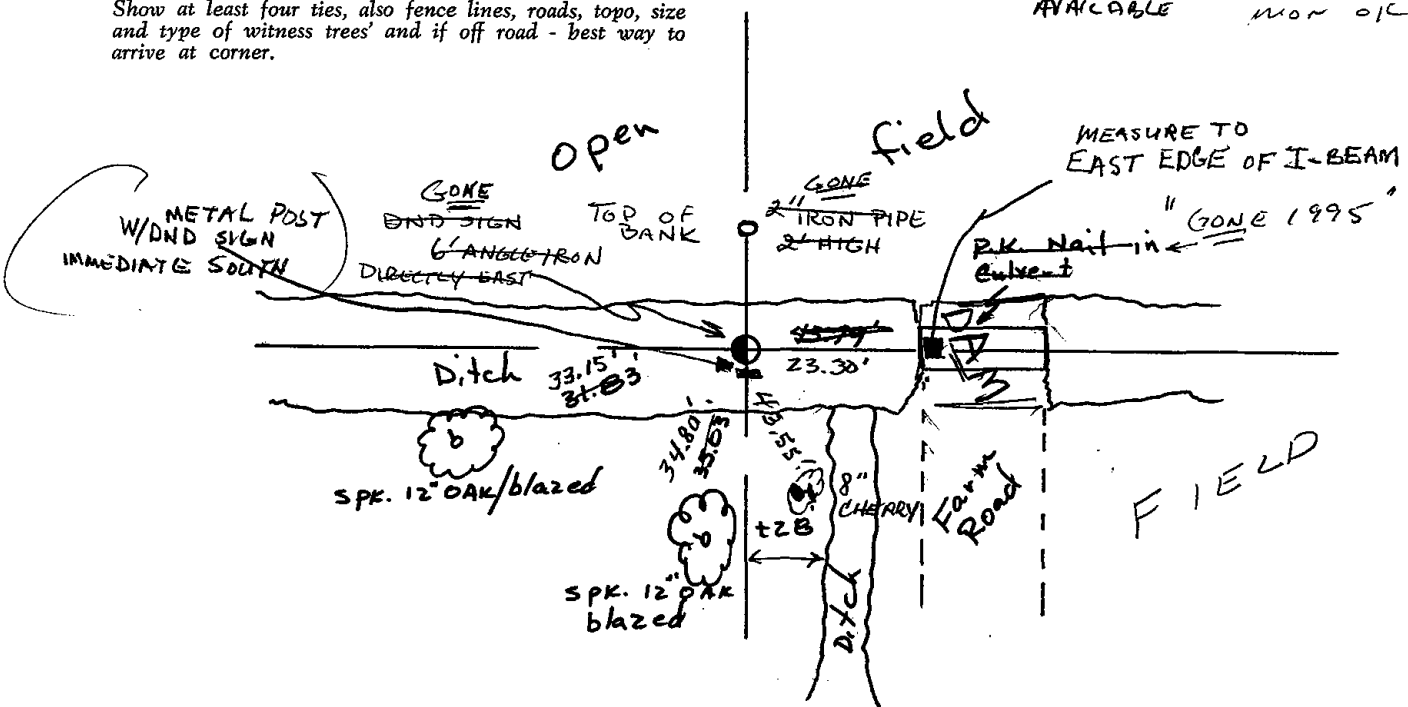 Show at least four ties, also fence lines, roads, topo, size
and type of witness trees' and if off road - best way to
arrive at corner.
AVAILABLE MON OK
Open field
MEASURE TO
EAST EDGE OF I-BEAM
METAL POST
W/DND SIGN
IMMEDIATE SOUTH
GONE
DND SIGN
6' ANGLE IRON
DIRECTLY EAST
TOP OF
BANK
GONE
2" IRON PIPE
2' HIGH
"GONE 1995"
P.K. Nail in
Culvert
23.30'
Ditch
33.15'
31.83'
34.80'
35.03
43.55'
b
SPK. 12" OAK/blazed
b
SPK. 12" OAK
blazed
8"
CHERRY
±28
Ditch
Farm
Road
FIELD